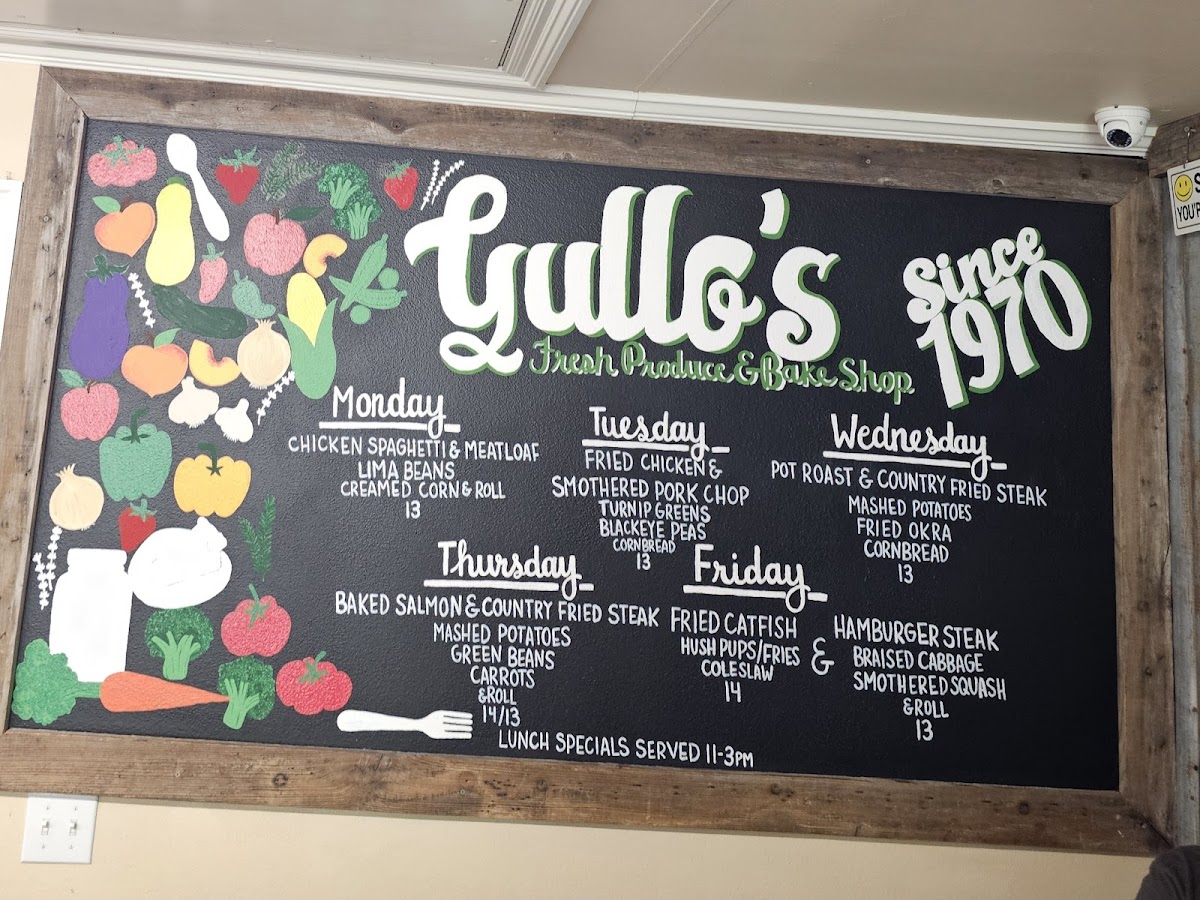 Gullo's
Fresh Produce & Bake Shop
Since
1970
Monday
CHICKEN SPAGHETTI & MEATLOAF
LIMA BEANS
CREAMED CORN & ROLL
13
Tuesday
FRIED CHICKEN &
SMOTHERED PORK CHOP
TURNIP GREENS
BLACKEYE PEAS
CORNBREAD
13
Wednesday
POT ROAST & COUNTRY FRIED STEAK
MASHED POTATOES
FRIED OKRA
CORNBREAD
13
Thursday
BAKED SALMON & COUNTRY FRIED STEAK
MASHED POTATOES
GREEN BEANS
CARROTS
& ROLL
14/13
Friday
FRIED CATFISH
HUSH PUPS/FRIES
COLESLAW
14
&
HAMBURGER STEAK
BRAISED CABBAGE
SMOTHERED SQUASH
& ROLL
13
LUNCH SPECIALS SERVED 11-3PM